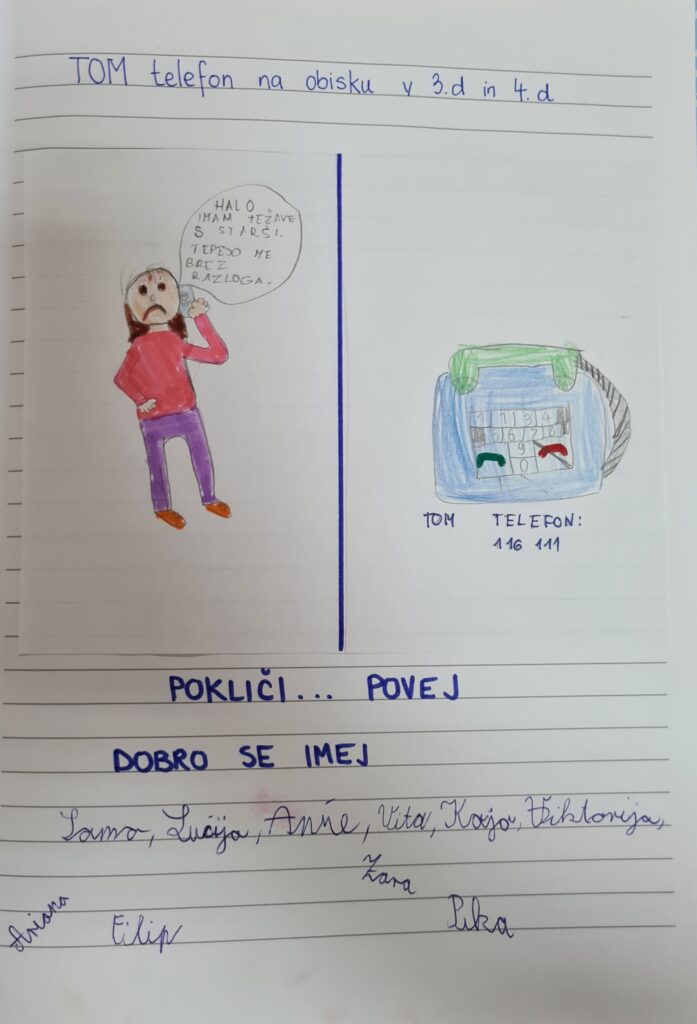 TOM telefon na obisku v 3.d in 4.d
HALO
IMAM TEŽAVE
S STARŠI.
TEPEJO ME
BREZ
RAZLOGA.
1 1 3 4
5 6 7 8
9
0
TOM TELEFON:
116 111
POKLIČI... POVEJ
DOBRO SE IMEJ
Lucija, Anne, Vita, Kaja, Viktorija,
Zara
Ariana Filip Pika